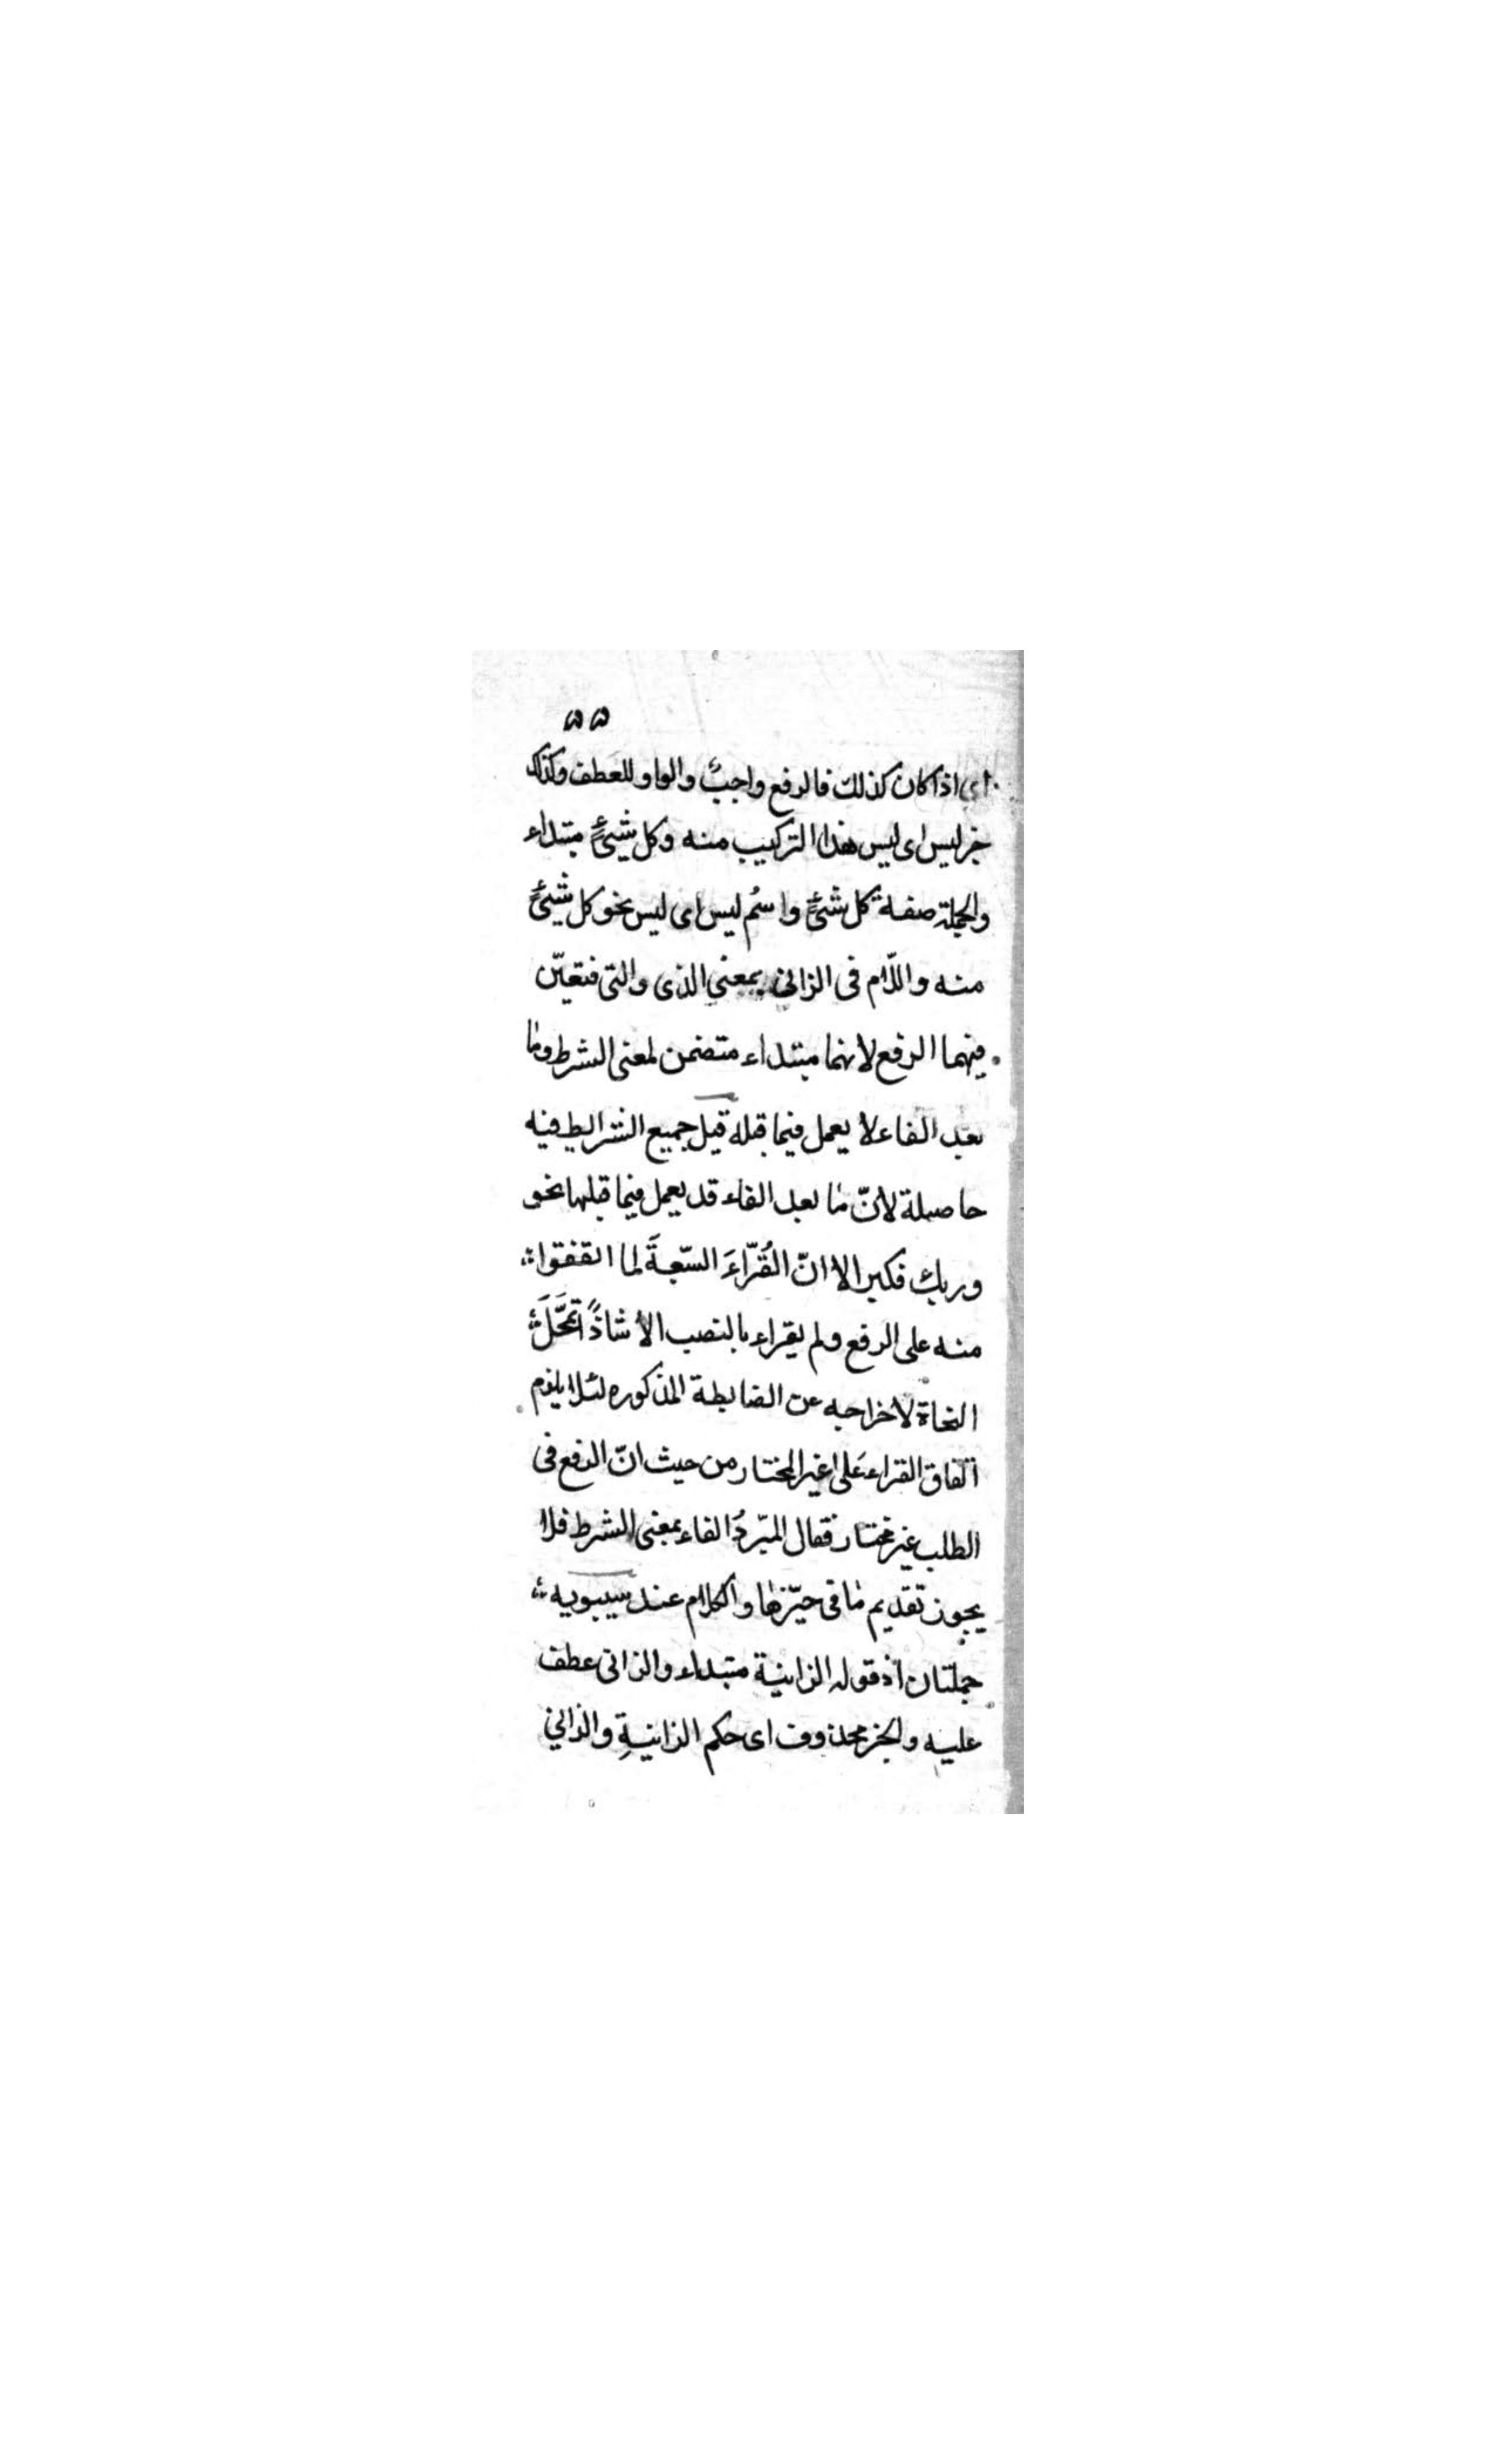 ٥٥
اى اذا كان كذلك فالرفع واجبٌ والواو للعطف وكذلك
خبر ليس اى ليس هذا التركيب منه وكل شيىءٍ مبتداء
والجملة صفة كل شىءٍ واسمُ ليس اى ليس نحو كل شيىءٍ
منه واللّام فى الزانى بمعنى الذى والتى فتعيّن
فيهما الرفع لانهما مبتداء متضمن لمعنى الشرط وما
بعد الفاء لا يعمل فيما قبله قيل جميع الشرايط فيه
حاصلة لانّ ما بعد الفاء قد يعمل فيما قبلها نحو
وربك فكبر الا انّ القُرّاءَ السّبعةَ لما اتفقوا
منه على الرفع ولم يقراء بالنصب الا شاذًا تمحَّلَ
النحاة لاخراجه عن الضابطة المذكوره لئلا يلزم
اتفاق القراء على غير المختار من حيث انّ الرفع فى
الطلب غير مختار فقال المبرّدُ الفاء بمعنى الشرط فلا
يجوز تقديم ما فى حيّزها والكلام عند سيبويه
جملتان اذ قوله الزانية مبتداء والزانى عطف
عليه والخبر محذوف اى حكم الزانيةِ والزاني